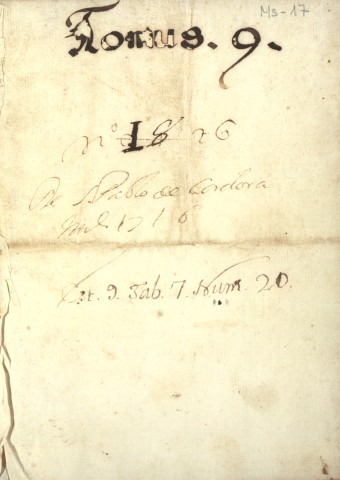 Ms-17
Tomus. 9.
Nº 18 26
De Pablo de Cordova
1716
Est. 9. Tab. 7. Num. 20.